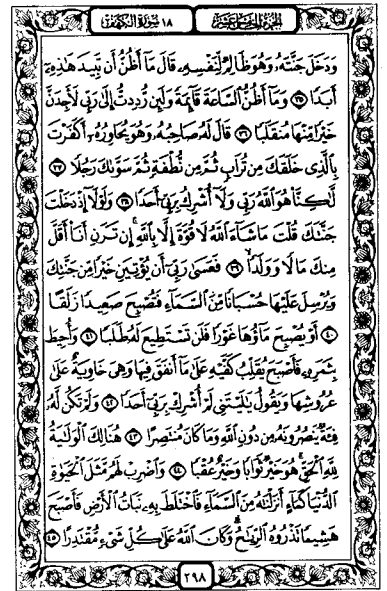 الجزء الخامس عشر
١٨ سورة الكهف
وَدَخَلَ جَنَّتَهُۥ وَهُوَ ظَالِمٌ لِّنَفْسِهِۦ قَالَ مَآ أَظُنُّ أَن تَبِيدَ هَٰذِهِۦٓ
أَبَدًا ﴿٣٥﴾ وَمَآ أَظُنُّ ٱلسَّاعَةَ قَآئِمَةً وَلَئِن رُّدِدتُّ إِلَىٰ رَبِّى لَأَجِدَنَّ
خَيْرًا مِّنْهَا مُنقَلَبًا ﴿٣٦﴾ قَالَ لَهُۥ صَاحِبُهُۥ وَهُوَ يُحَاوِرُهُۥٓ أَكَفَرْتَ
بِٱلَّذِى خَلَقَكَ مِن تُرَابٍ ثُمَّ مِن نُّطْفَةٍ ثُمَّ سَوَّىٰكَ رَجُلًا ﴿٣٧﴾
لَّٰكِنَّا۠ هُوَ ٱللَّهُ رَبِّى وَلَآ أُشْرِكُ بِرَبِّىٓ أَحَدًا ﴿٣٨﴾ وَلَوْلَآ إِذْ دَخَلْتَ
جَنَّتَكَ قُلْتَ مَا شَآءَ ٱللَّهُ لَا قُوَّةَ إِلَّا بِٱللَّهِ إِن تَرَنِ أَنَا۠ أَقَلَّ
مِنكَ مَالًا وَوَلَدًا ﴿٣٩﴾ فَعَسَىٰ رَبِّىٓ أَن يُؤْتِيَنِ خَيْرًا مِّن جَنَّتِكَ
وَيُرْسِلَ عَلَيْهَا حُسْبَانًا مِّنَ ٱلسَّمَآءِ فَتُصْبِحَ صَعِيدًا زَلَقًا
﴿٤٠﴾ أَوْ يُصْبِحَ مَآؤُهَا غَوْرًا فَلَن تَسْتَطِيعَ لَهُۥ طَلَبًا ﴿٤١﴾ وَأُحِيطَ
بِثَمَرِهِۦ فَأَصْبَحَ يُقَلِّبُ كَفَّيْهِ عَلَىٰ مَآ أَنفَقَ فِيهَا وَهِىَ خَاوِيَةٌ عَلَىٰ
عُرُوشِهَا وَيَقُولُ يَٰلَيْتَنِى لَمْ أُشْرِكْ بِرَبِّىٓ أَحَدًا ﴿٤٢﴾ وَلَمْ تَكُن لَّهُۥ
فِئَةٌ يَنصُرُونَهُۥ مِن دُونِ ٱللَّهِ وَمَا كَانَ مُنتَصِرًا ﴿٤٣﴾ هُنَالِكَ ٱلْوَلَٰيَةُ
لِلَّهِ ٱلْحَقِّ هُوَ خَيْرٌ ثَوَابًا وَخَيْرٌ عُقْبًا ﴿٤٤﴾ وَٱضْرِبْ لَهُم مَّثَلَ ٱلْحَيَوٰةِ
ٱلدُّنْيَا كَمَآءٍ أَنزَلْنَٰهُ مِنَ ٱلسَّمَآءِ فَٱخْتَلَطَ بِهِۦ نَبَاتُ ٱلْأَرْضِ فَأَصْبَحَ
هَشِيمًا تَذْرُوهُ ٱلرِّيَٰحُ وَكَانَ ٱللَّهُ عَلَىٰ كُلِّ شَىْءٍ مُّقْتَدِرًا ﴿٤٥﴾
٢٩٨